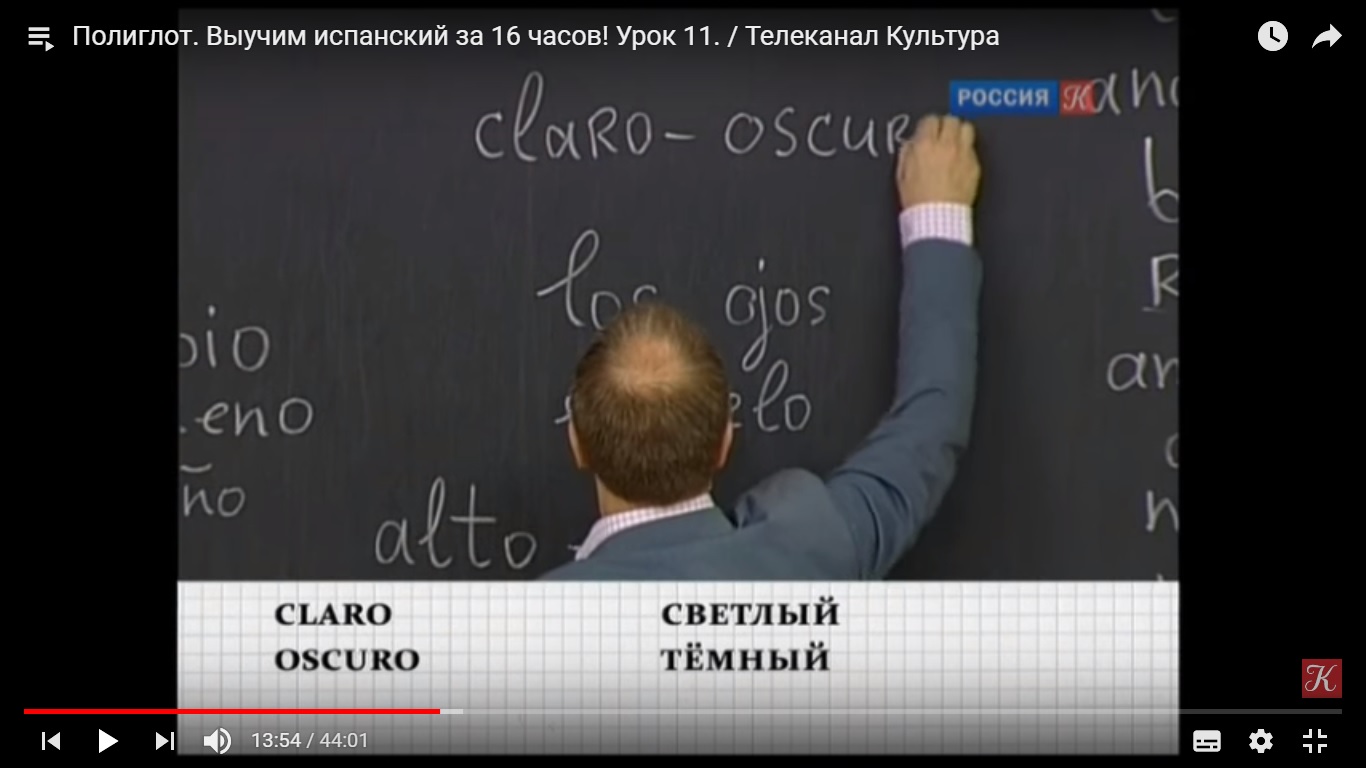 Полиглот. Выучим испанский за 16 часов! Урок 11. / Телеканал Культура
РОССИЯ К
claRo - oscuR
los ojos
alto
CLARO СВЕТЛЫЙ
OSCURO ТЁМНЫЙ
К
13:54 / 44:01